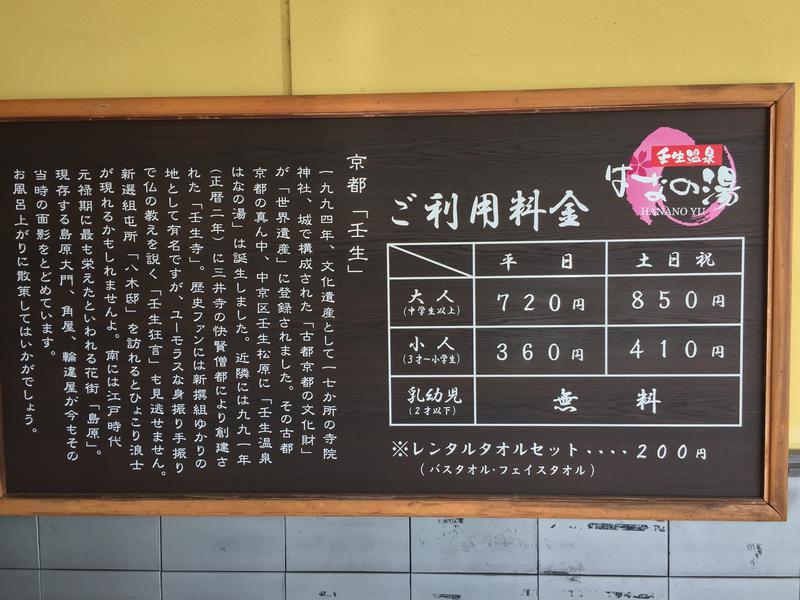 壬生温泉
はなの湯
HANANO YU
ご利用料金
平 日
土日祝
大人
(中学生以上)
720円
850円
小人
(3才〜小学生)
360円
410円
乳幼児
(2才以下)
無 料
※レンタルタオルセット‥‥200円
(バスタオル・フェイスタオル)
京都「壬生」
一九九四年、文化遺産として一七か所の寺院
神社、城で構成された「古都京都の文化財」
が「世界遺産」に登録されました。その古都
京都の真ん中、中京区壬生松原に「壬生温泉
はなの湯」は誕生しました。近隣には九九一年
(正暦二年)に三井寺の快賢僧都により創建さ
れた「壬生寺」。歴史ファンには新撰組ゆかりの
地として有名ですが、ユーモラスな身振り手振り
で仏の教えを説く「壬生狂言」も見逃せません。
新選組屯所「八木邸」を訪れるとひょこり浪士
が現れるかもしれませんよ。南には江戸時代
元禄期に最も栄えたといわれる花街「島原」。
現存する島原大門、角屋、輪違屋が今もその
当時の面影をとどめています。
お風呂上がりに散策してはいかがでしょう。